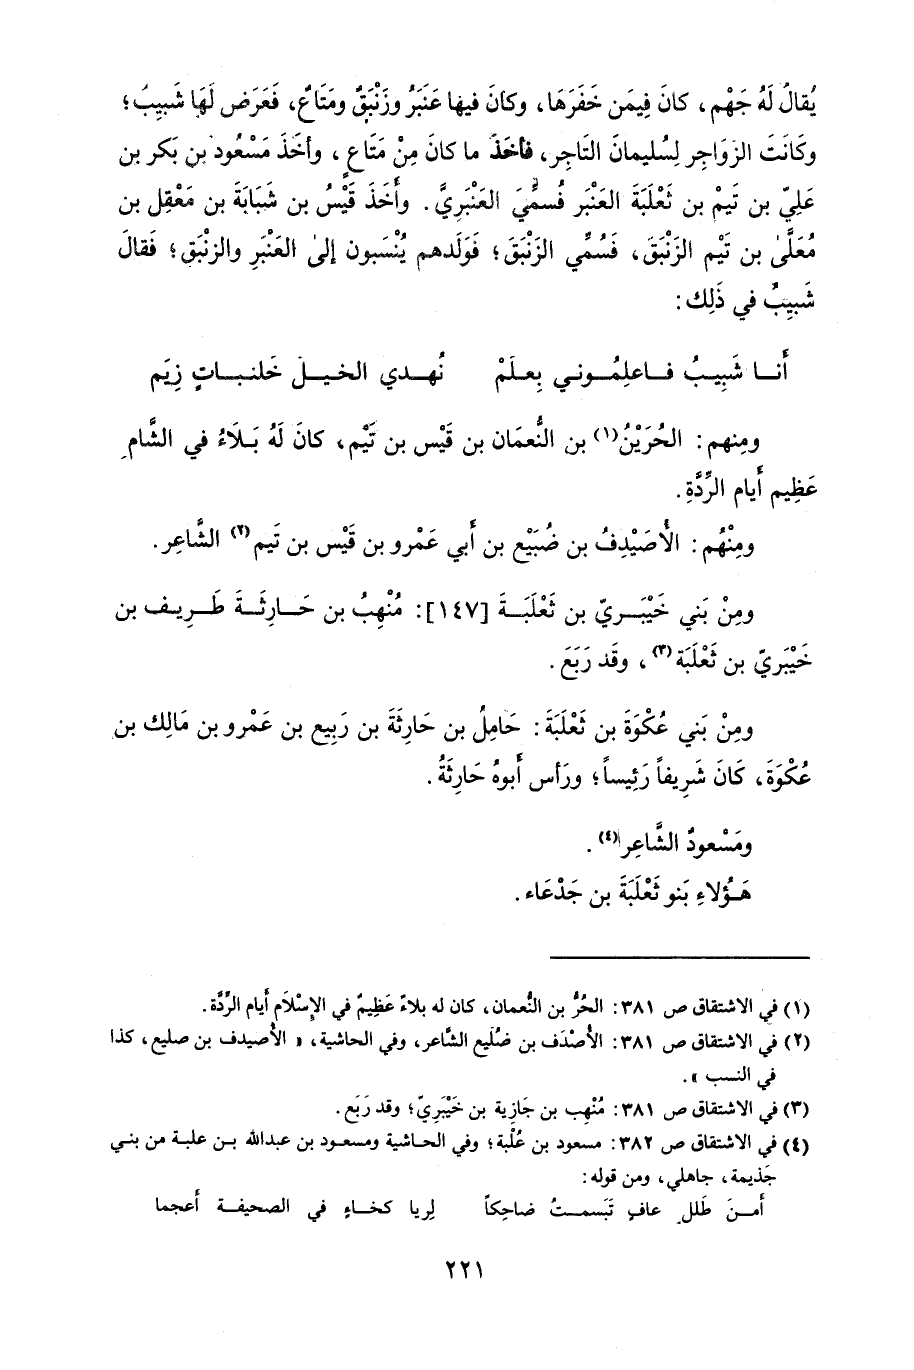 يُقالُ لَهُ جَهْم، كانَ فِيمَن خَفَرَهَا، وكانَ فيها عَنبَرُ وزَنْبَقٌ ومَتَاعٌ، فَعَرَض لَهَا شَبيِبٌ؛
وكَانَتَ الزوَاجِر لِسُليمانَ التَاجِر، فأخَذَ ما كانَ مِنْ مَتَاعٍ، وأخَذَ مَسْعُود بن بَكر بن
عَليّ بن تَيمْ بن ثَعْلَبَةَ العَنْبَر فُسمَّيَ العَنْبَريَّ. وأَخَذَ قَيْسُ بن شَبَابَةَ بن مَعْقِل بن
مُعَلَّىٰ بن تَيْم الزَنْبَقَ، فَسُمِّي الزَنْبَقَ؛ فَوَلَدهم يُنْسَبون إلىٰ العَنْبَرِ والزنْبَق؛ فَقالَ
شَبيِبٌ في ذَلِك:
أَنــا شَبيِـبُ فـاعلِمُـوني بِعلَمْ نُهـدي الخيـل خَلنبـاتٍ زِيَم
ومِنهم: الحُرَيْنُ(١) بن النُّعمَان بن قَيْس بن تَيَّم، كانَ لَهُ بَلاءُ في الشَّام
عَظِيم أَيام الرِّدَّةِ.
ومِنْهُم: الأصَيْدِفُ بن ضُبَيْع بن أَبي عَمْرو بن قَيْس بن تَيم(٢) الشَّاعِر.
ومِنْ بَني خَيْبَـريّ بن ثَعْلَبَـةَ [١٤٧]: مُنْهِبُ بن حَـارِثَـةَ طَـريـف بن
خَيْبَريّ بن ثَعْلَبَة(٣)، وقَد رَبَعَ.
ومِنْ بَني عُكْوَةَ بن ثَعْلَبَةَ: حَامِلُ بن حَارِثَةَ بن رَبِيع بن عَمْرو بن مَالِك بن
عُكْوَةَ، كَانَ شَرِيفاً رَئِيساً؛ ورَأس أَبوهُ حَارِثَةُ.
ومَسْعودٌ الشَّاعِر(٤).
هَـؤُلاءِ بَنو ثَعْلَبَةَ بن جَدْعَاء.
(١) في الاشتقاق ص ٣٨١: الحُرُّ بن النُّعمان، كان له بلاءً عَظِيمٌ في الإسْلَام أَيام الرِّدَّة.
(٢) في الاشتقاق ص ٣٨١: الأَصْدَف بن صُلَيع الشَّاعر، وفي الحاشية، « الأصيدف بن صليع، كذا
في النسب ».
(٣) في الاشتقاق ص ٣٨١: مُنْهِب بن جَازية بن خَيْبَريّ؛ وقد رَبَع.
(٤) في الاشتقاق ص ٣٨٢: مسعود بن عُلْبة؛ وفي الحاشية ومسعود بن عبدالله بـن علبـة من بنـي
جَذيمة، جاهلي، ومن قوله:
أَمــنَ طَللٍ عافٍ تَبَسمـتُ ضاحِكاً لِريا كخـاءٍ في الصحيفـة أعجما
٢٢١